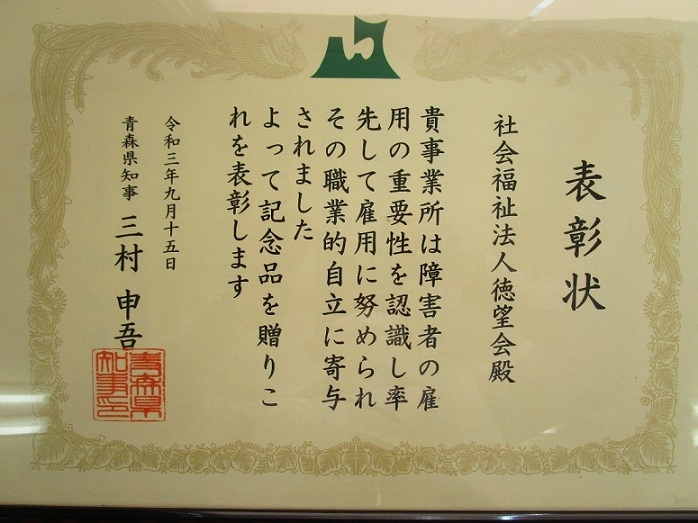 表彰状
社会福祉法人徳望会殿
貴事業所は障害者の雇
用の重要性を認識し率
先して雇用に努められ
その職業的自立に寄与
されました
よって記念品を贈りこ
れを表彰します
令和三年九月十五日
青森県知事 三村 申吾
青森県
知事印